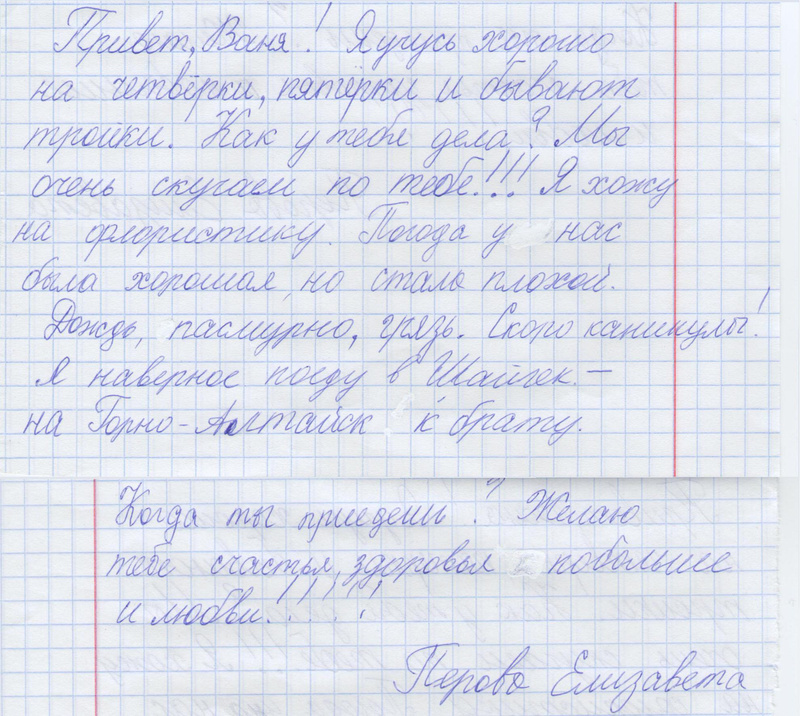 Привет, Ваня! Я учусь хорошо
на четвёрки, пятёрки и бывают
тройки. Как у тебя дела? Мы
очень скучаем по тебе!!! Я хожу
на флористику. Погода у нас
была хорошая, но стала плохой.
Дождь, пасмурно, грязь. Скоро каникулы!
Я наверное поеду в –
на Горно-Алтайск к брату.
Когда ты приедешь? Желаю
тебе счастья, здоровья побольше
и любви.!!!!!
Перова Елизавета